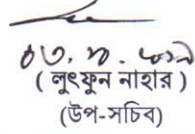 ( লুৎফুন নাহার )
(উপ-সচিব)